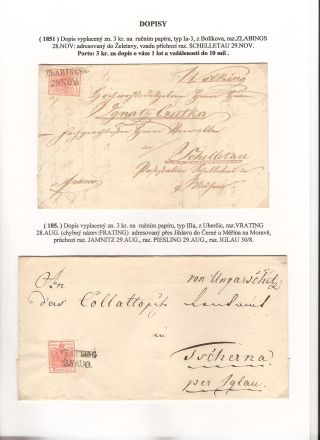 DOPISY
( 1851 ) Dopis vyplacený zn. 3 kr. na ručním papíru, typ Ia-3, z Bolíkova, raz.ZLABINGS
28.NOV: adresovaný do Želetavy, vzadu příchozí raz. SCHELLETAU 29.NOV.
Porto: 3 kr. za dopis o váze 1 lot a vzdálenosti do 10 mil .
ZLABINGS
28NOV
Wölking
Hochwohlgeboren Herrn Herrn
Ignatz
Schelletau
franco
Mähren
( 185. ) Dopis vyplacený zn. 3 kr. na ručním papíru, typ IIIa, z Uherčic, raz.VRATING
28.AUG. (chybný název:FRATING) adresovaný přes Jihlavu do Černé u Měřína na Moravě,
průchozí raz. JAMNITZ 29.AUG., raz. PIESLING 29.AUG., raz. IGLAU 30/8.
An von Ungarschitz
das Collalto
in
Tscherna
per Iglau.
AUG.